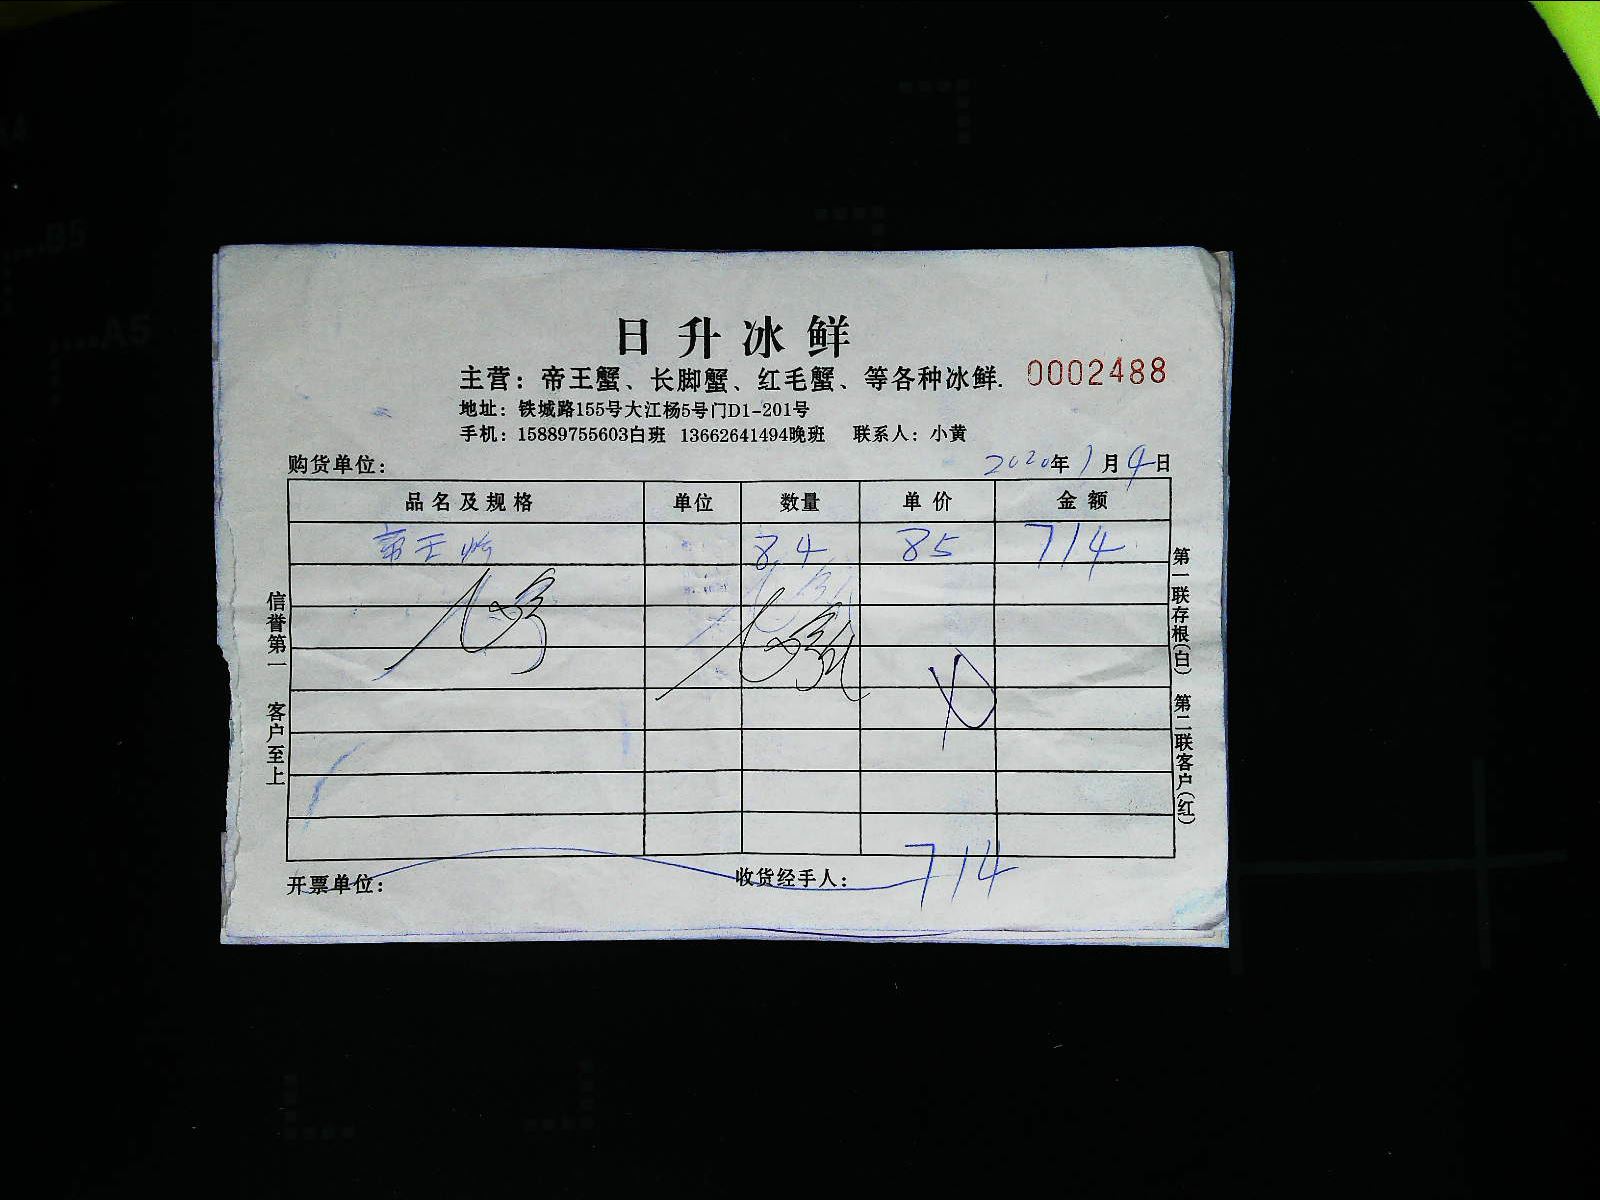 日升冰鲜
主营：帝王蟹、长脚蟹、红毛蟹、等各种冰鲜.
0002488
地址：铁城路155号大江杨5号门D1-201号
手机：15889755603白班 13662641494晚班 联系人：小黄
购货单位： 2020年1月9日
品名及规格 单位 数量 单价 金额
帝王 8.4 85 714
714
开票单位： 收货经手人：
信誉第一 客户至上
第一联存根(白) 第二联客户(红)
A5
B5